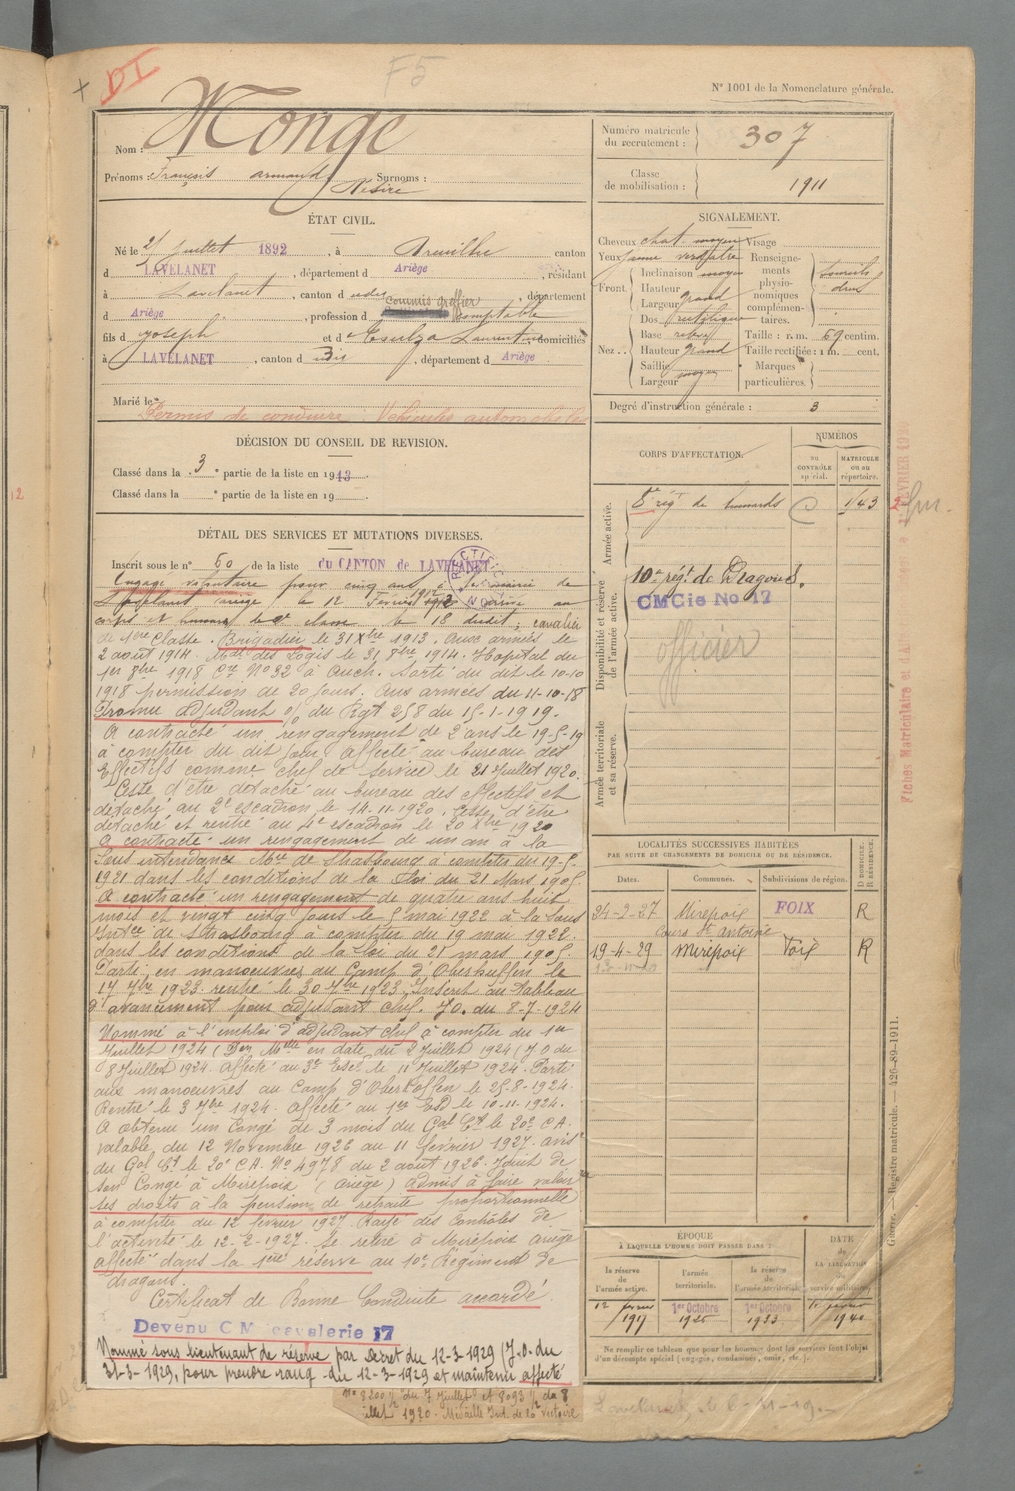 DI
F5
N° 1001 de la Nomenclature générale.
Nom : Monge
Prénoms : François armand Désiré Surnoms :
Numéro matricule du recrutement : 307
Classe de mobilisation : 1911
ÉTAT CIVIL.
Né le 21 Juillet 1892, à canton
d LAVELANET, département d Ariège, résidant
à Lavelanet, canton d udit, département
d Ariège, profession d commis greffier comptable
fils d Joseph et d Laurentine, domiciliés
à LAVELANET, canton d udit, département d Ariège
Marié le
Permis de conduire Véhicules automobiles
SIGNALEMENT.
Cheveux chat. moyen Visage
Yeux jaune verdâtre
Front. Inclinaison moyen
Hauteur
Largeur grand
Nez .. Dos rectiligne
Base
Hauteur grand
Saillie
Largeur moyen
Renseignements physionomiques complémentaires. sourcils drus
Taille : 1 m. 69 centim.
Taille rectifiée : 1 m. cent.
Marques particulières.
Degré d'instruction générale : 3
DÉCISION DU CONSEIL DE REVISION.
Classé dans la 3e partie de la liste en 1913.
Classé dans la e partie de la liste en 19
DÉTAIL DES SERVICES ET MUTATIONS DIVERSES.
Inscrit sous le n° 60 de la liste du CANTON de LAVELANET
Engagé volontaire pour cinq ans à la mairie de
Lavelanet ariège le 12 Février 1912 arrivé au
corps et hussard de 2e classe le 18 dudit; cavalier
de 1ere Classe. Brigadier le 31 Xbre 1913. Aux armées le
2 août 1914. Mal des Logis le 31 8bre 1914. Hopital du
1er 8bre 1918 Cre No 32 à Auch. Sorti du dit le 10-10
1918 permission de 20 jours. Aux armées du 11-10-18
Promu adjudant % du Rgt 258 du 15-1-1919.
A contracté un rengagement de 2 ans le 19-5-19
à compter du dit jour affecté au bureau des
Effectifs comme chef de service le 21 Juillet 1920.
Cesse d'être détaché au bureau des effectifs et
détaché au 2e escadron le 14-11-1920. Cesse d'être
détaché et rentré au 4e escadron le 20 Xbre 1920
A contracté un rengagement de un an à la
Sous intendance Mre de Strasbourg à compter du 19-5-
1921 dans les conditions de la Loi du 21 Mars 1905.
A contracté un rengagement de quatre ans huit
mois et vingt cinq jours le 5 mai 1922 à la Sous
Intce de Strasbourg à compter du 19 mai 1922.
dans les conditions de la Loi du 21 mars 1905.
Parti en manoeuvres au Camp d'Oberhoffen le
17 7bre 1923 rentré le 30 7bre 1923. Inscrit au Tableau
d'avancement pour adjudant chef. J.O. du 8-7-1924
Nommé à l'emploi d'adjudant chef à compter du 1er
Juillet 1924 (Don Melle en date du 2 Juillet 1924 (J O du
8 Juillet 1924. Affecté au 3e Esc. le 11 Juillet 1924. Parti
aux manoeuvres au Camp d'Oberhoffen le 25-8-1924.
Rentré le 3 7bre 1924. Affecté au 1er Esd le 10-11-1924.
A obtenu un Congé de 3 mois du Gal Ct le 20e C.A.
valable du 12 Novembre 1926 au 11 février 1927. avis
du Gal Ct le 20e CA. No 4978 du 2 août 1926. Jouit de
son Congé à Mirepoix (ariège) admis à faire valoir
ses droits à la pension de retraite proportionnelle
à compter du 12 février 1927. Rayé des contrôles de
l'activité le 12-2-1927. Se retire à Mirepoix ariège
affecté dans la 1ere réserve au 10e Régiment de
dragons.
Certificat de Bonne Conduite accordé
Devenu C M cavalerie 17
Nommé sous lieutenant de réserve par Décret du 12-3-1929 (J.O. du
31-3-1929, pour prendre rang du 12-3-1929 et maintenu affecté
No 8200 ½ du 7 Juillet et 8093 ½ du 8
illet 1920 - Médaille Int. de la Victoire
CORPS D'AFFECTATION.
NUMÉROS
DU CONTRÔLE spécial.
MATRICULE ou au répertoire.
Armée active.
5e régt de hussards 1143
Disponibilité et réserve de l'armée active.
10e régt de Dragons.
CMCie No 17
officier
Armée territoriale et sa réserve.
LOCALITÉS SUCCESSIVES HABITÉES
PAR SUITE DE CHANGEMENTS DE DOMICILE OU DE RÉSIDENCE.
Dates. Communes. Subdivisions de région. D DOMICILE. R RÉSIDENCE.
24-2-27 Mirepoix FOIX R
Cours St Antoine
19-4-29 Mirepoix Foix R
ÉPOQUE
À LAQUELLE L'HOMME DOIT PASSER DANS :
la réserve de l'armée active. l'armée territoriale. la réserve de l'armée territoriale.
DATE de LA LIBÉRATION du service militaire.
12 février 1917
1er Octobre 1926
1er Octobre 1933
12 février 1940
Ne remplir ce tableau que pour les hommes dont les services font l'objet d'un décompte spécial (engagés, condamnés, omis, etc.).
Guerre. — Registre matricule. — 426-89-1911.